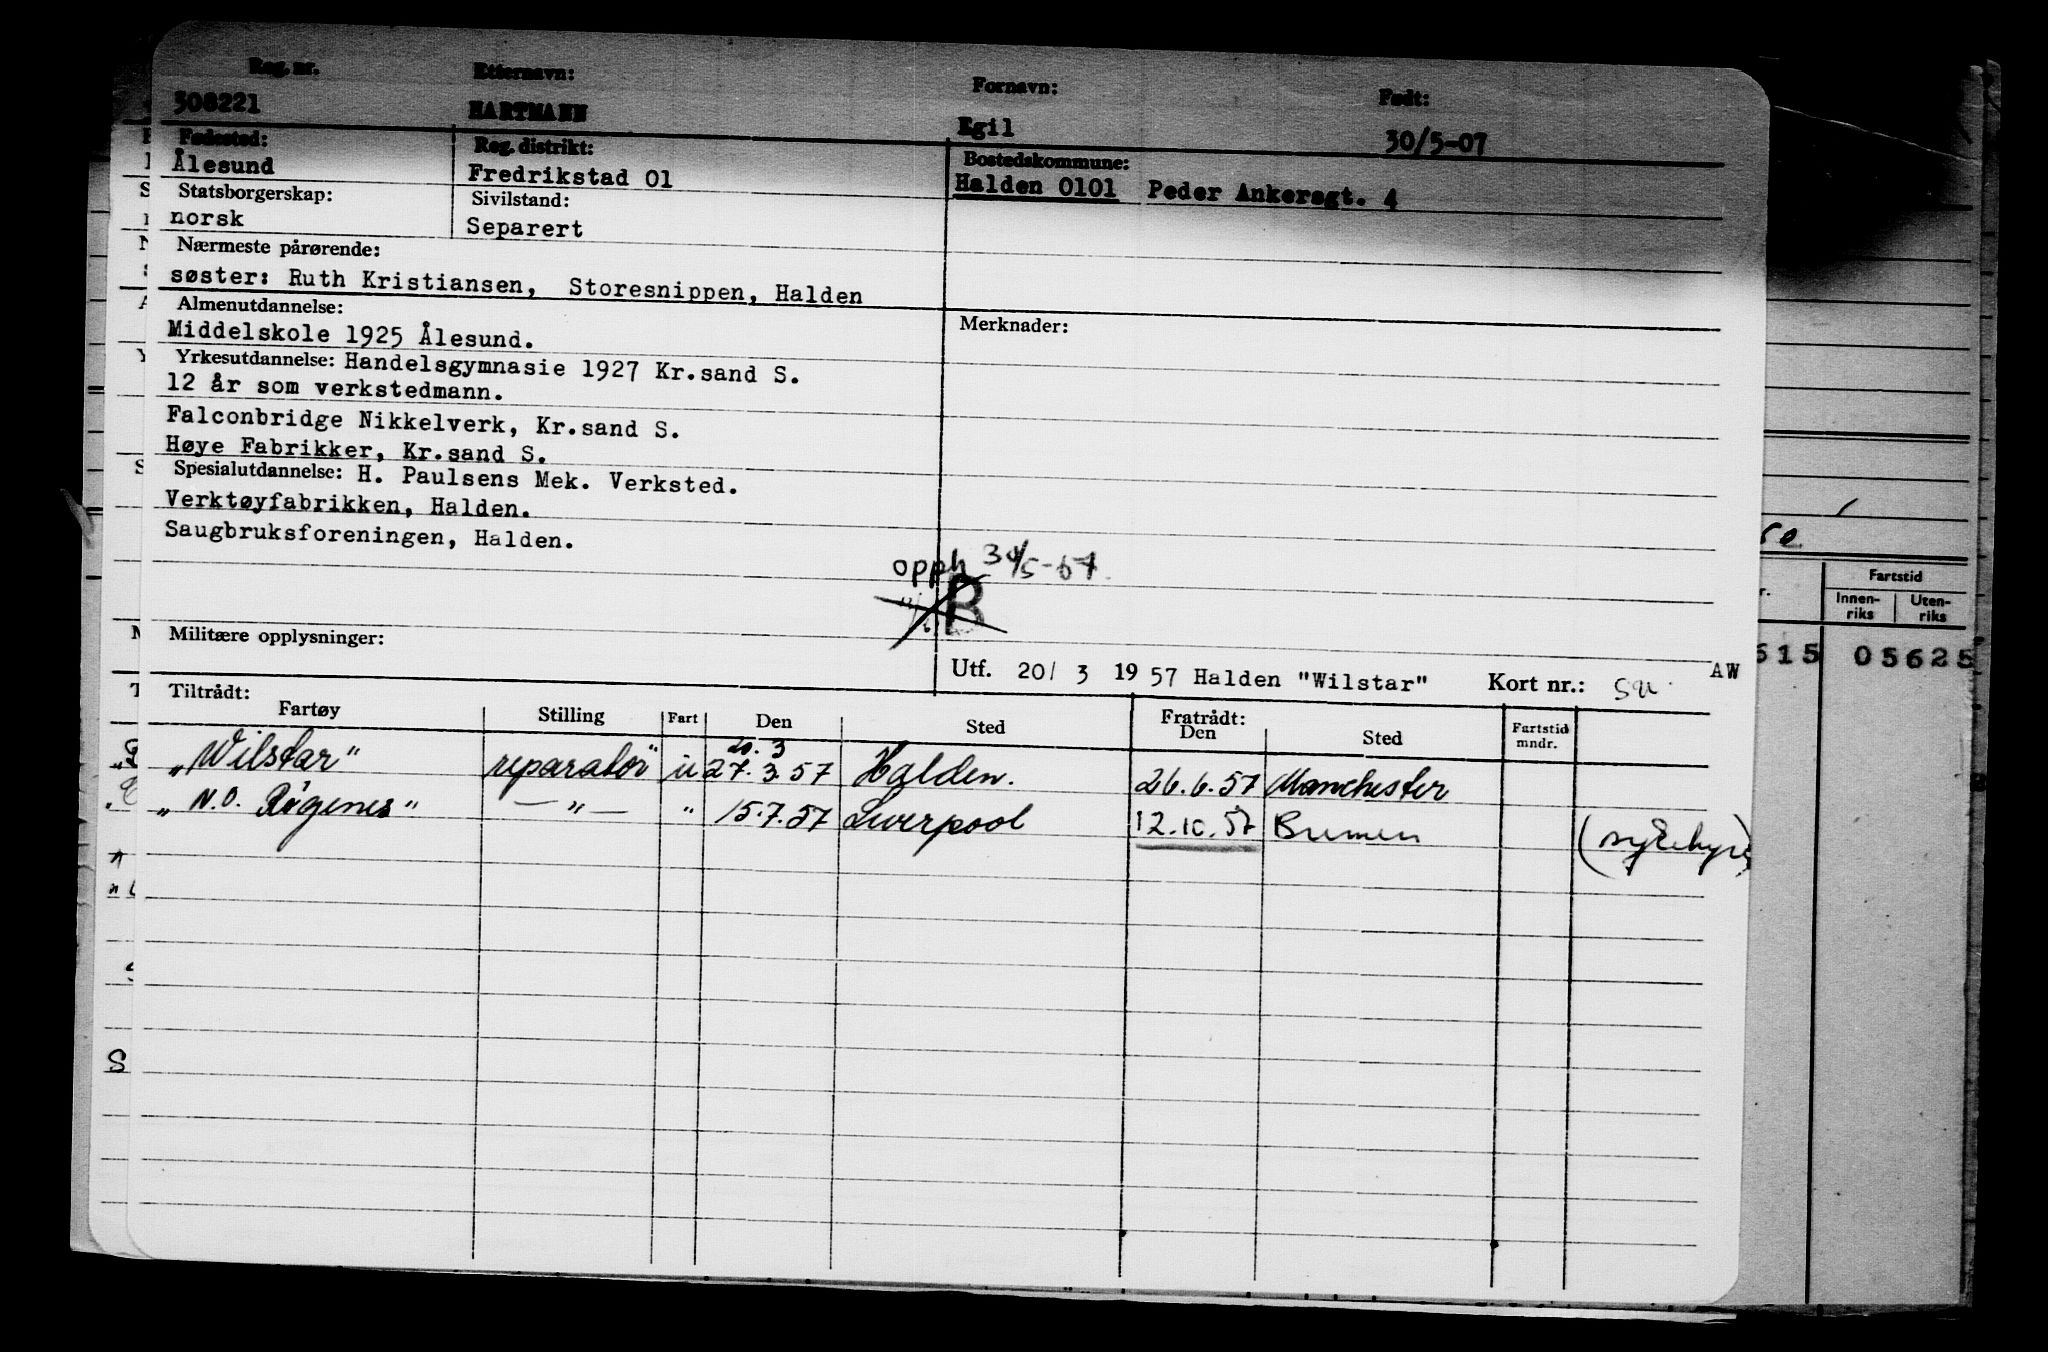 Reg. nr. Etternavn: Fornavn: Født:
308221 HARTMANN Egil 30/5-07
Fødested: Reg. distrikt: Bostedskommune:
Ålesund Fredrikstad 01 Halden 0101 Peder Ankersgt. 4
Statsborgerskap: Sivilstand:
norsk Separert
Nærmeste pårørende:
søster: Ruth Kristiansen, Storesnippen, Halden
Almenutdannelse: Merknader:
Middelskole 1925 Ålesund.
Yrkesutdannelse: Handelsgymnasie 1927 Kr.sand S.
12 år som verkstedmann.
Falconbridge Nikkelverk, Kr.sand S.
Høye Fabrikker, Kr.sand S.
Spesialutdannelse: H. Paulsens Mek. Verksted.
Verktøyfabrikken, Halden.
Saugbruksforeningen, Halden.
opph 30/5-57
B
Militære opplysninger:
Utf. 20/ 3 19 57 Halden "Wilstar" Kort nr.: AW
Tiltrådt: Fratrådt:
Fartøy Stilling Fart Den Sted Den Sted Fartstid mndr.
20. 3
"Wilstar" reparatør u 27.3.57 Halden. 26.6.57 Manchester
"N.O. Røgenes" — " — " 15.7.57 Liverpool 12.10.57 Bremen (sykehyre)
Fartstid
Innen-riks Uten-riks
615 05625